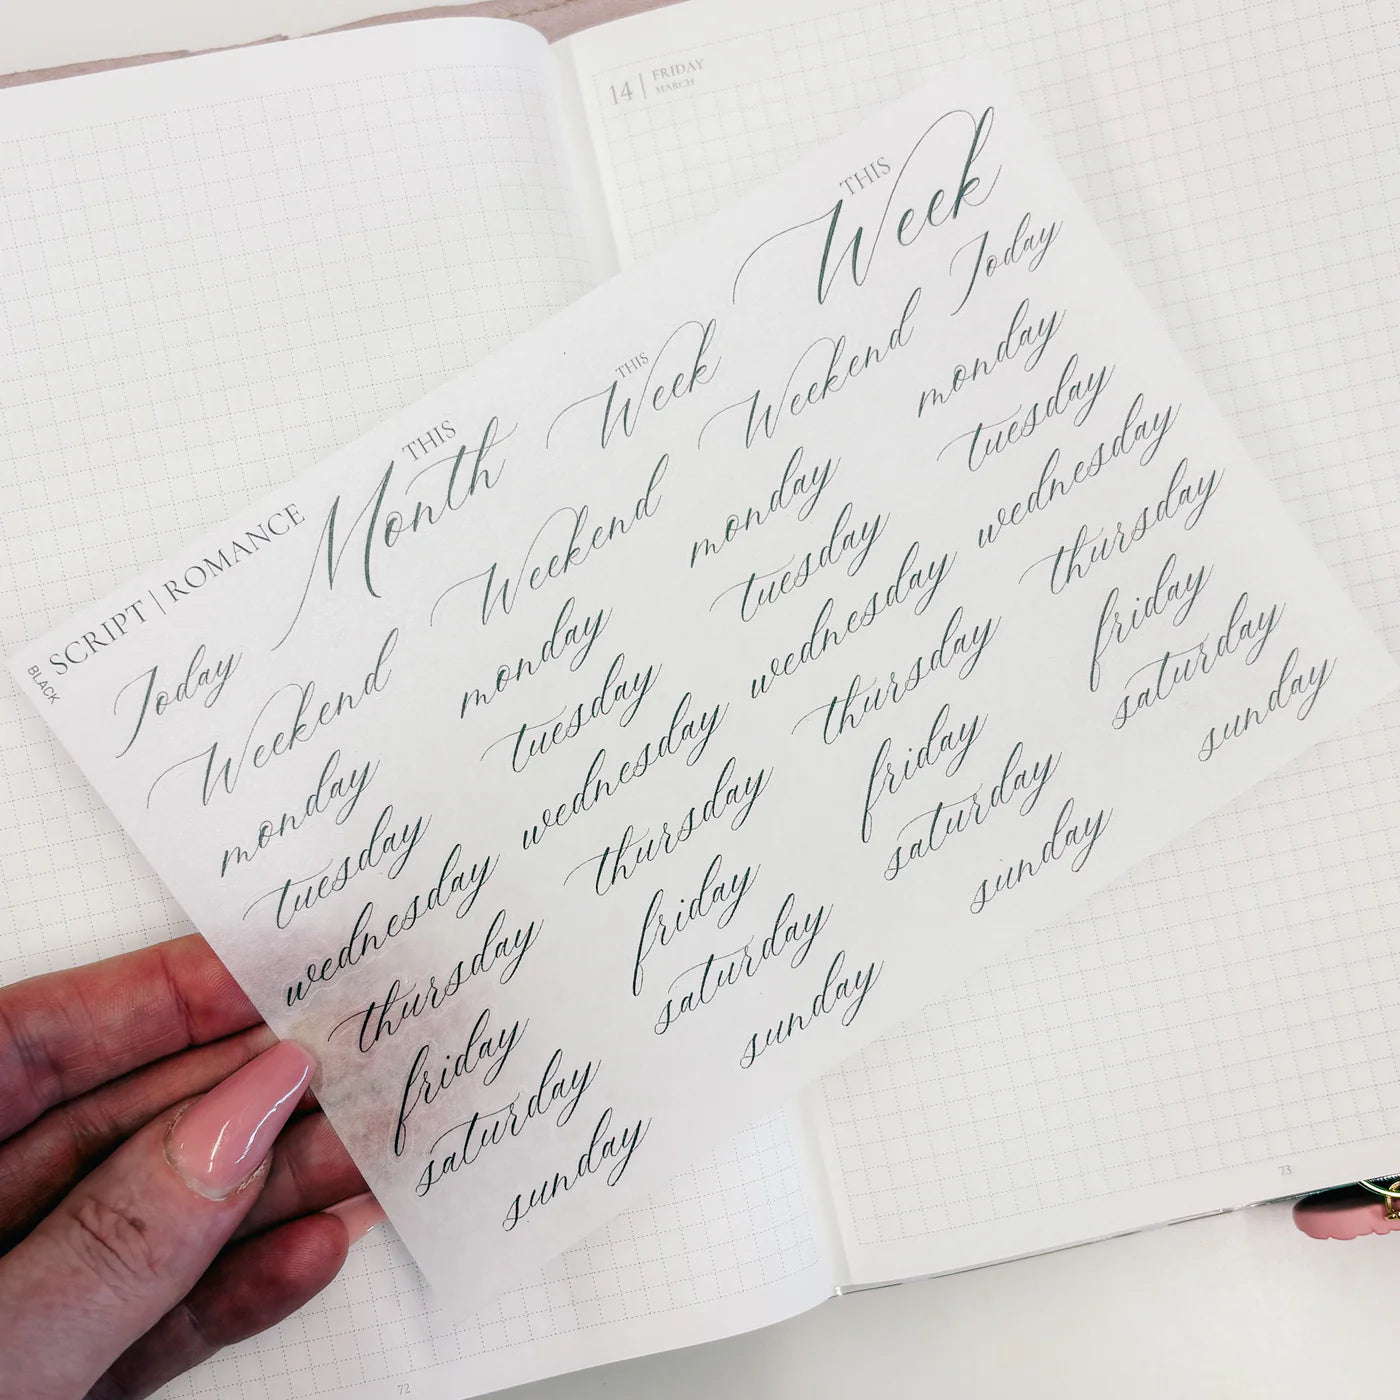 14 | FRIDAY
MARCH
BLACK
SCRIPT | ROMANCE
THIS
Month
THIS
Week
THIS
Week
Today
Weekend
monday
tuesday
wednesday
thursday
friday
saturday
sunday
Weekend
monday
tuesday
wednesday
thursday
friday
saturday
sunday
Weekend
monday
tuesday
wednesday
thursday
friday
saturday
sunday
Today
monday
tuesday
wednesday
thursday
friday
saturday
sunday
72
73